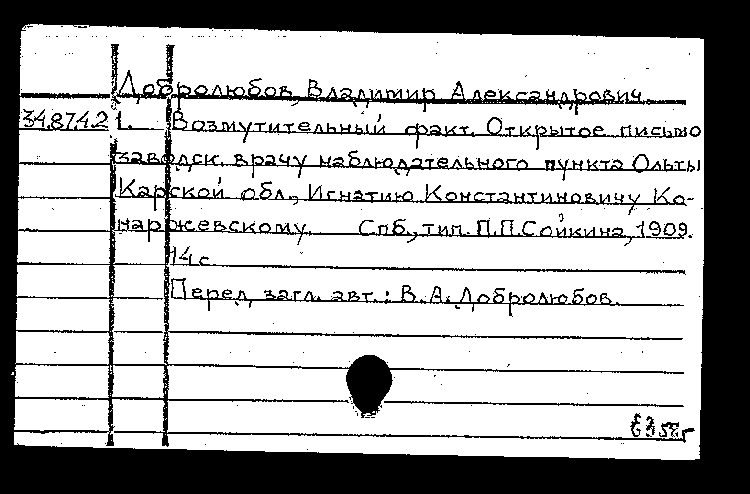 Добролюбов, Владимир Александрович.
34.87.4.2 1. Возмутительный факт. Открытое письмо
заводск. врачу наблюдательного пункта Ольты
Карской обл., Игнатию Константиновичу Ко-
наржевскому. Спб., тип. П.П.Сойкина, 1909.
14 с.
Перед загл. авт.: В.А.Добролюбов.